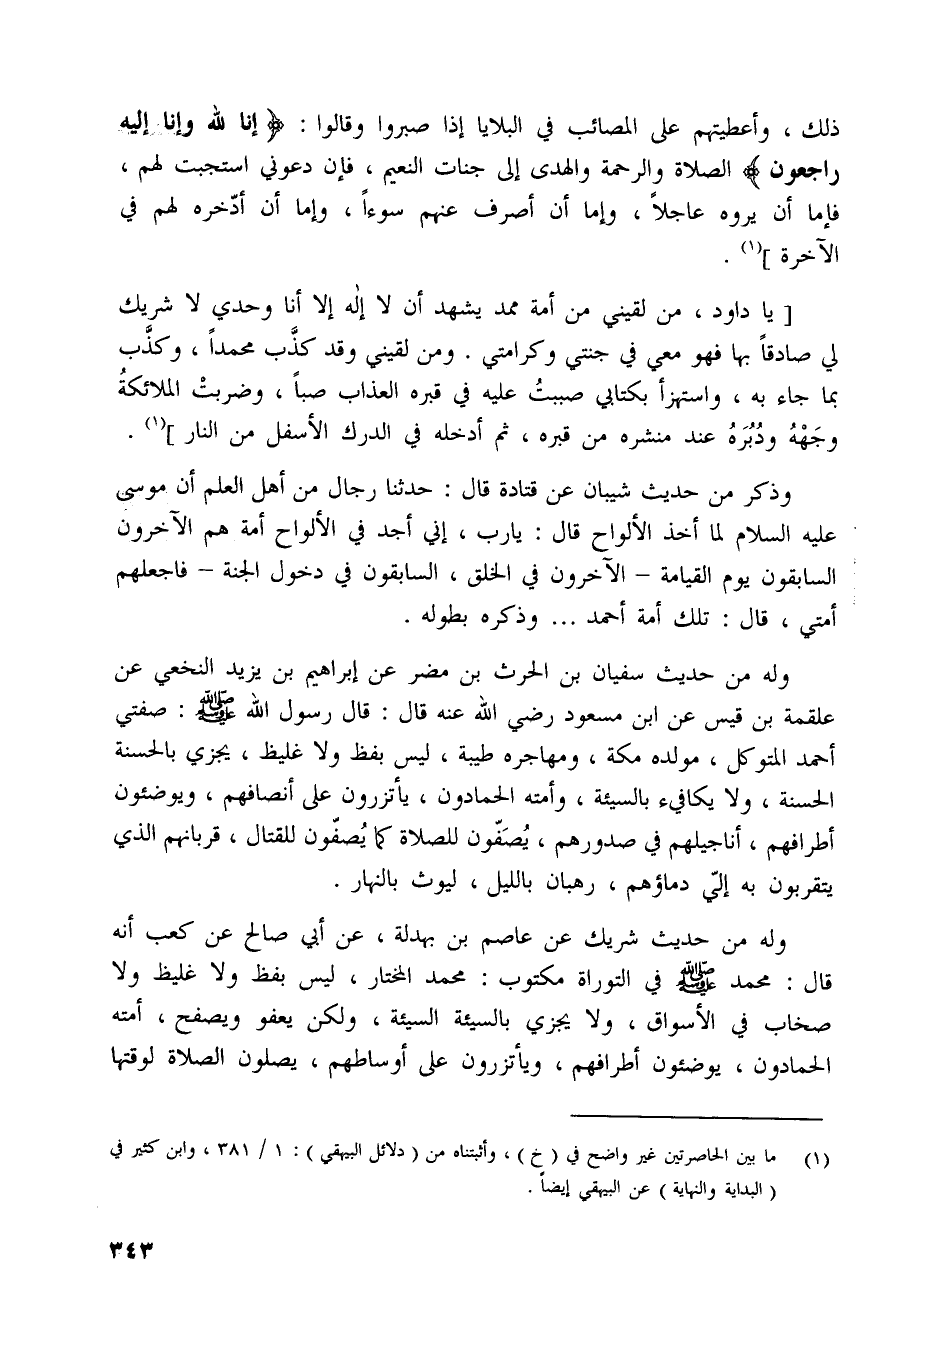 ذلك ، وأعطيتهم على المصائب في البلايا إذا صبروا وقالوا : ﴿ إنا لله وإنا إليه
راجعون ﴾ الصلاة والرحمة والهدى إلى جنات النعيم ، فإن دعوني استجبت لهم ،
فإما أن يروه عاجلاً ، وإما أن أصرف عنهم سوءاً ، وإما أن أدّخره لهم في
الآخرة ](١) .
[ يا داود ، من لقيني من أمة محمد يشهد أن لا إلٰه إلا أنا وحدي لا شريك
لي صادقاً بها فهو معي في جنتي وكرامتي . ومن لقيني وقد كذَّب محمداً ، وكذَّب
بما جاء به ، واستهزأ بكتابي صببتُ عليه في قبره العذاب صباً ، وضربتْ الملائكةُ
وجَهْهُ ودُبُرَهُ عند منشره من قبره ، ثم أدخله في الدرك الأسفل من النار ](١) .
وذكر من حديث شيبان عن قتادة قال : حدثنا رجال من أهل العلم أن موسى
عليه السلام لما أخذ الألواح قال : يارب ، إني أجد في الألواح أمة هم الآخرون
السابقون يوم القيامة – الآخرون في الخلق ، السابقون في دخول الجنة – فاجعلهم
أمتي ، قال : تلك أمة أحمد ... وذكره بطوله .
وله من حديث سفيان بن الحرث بن مضر عن إبراهيم بن يزيد النخعي عن
علقمة بن قيس عن ابن مسعود رضي الله عنه قال : قال رسول الله ﷺ : صفتي
أحمد المتوكل ، مولده مكة ، ومهاجره طيبة ، ليس بفظ ولا غليظ ، يجزي بالحسنة
الحسنة ، ولا يكافيء بالسيئة ، وأمته الحمادون ، يأتزرون على أنصافهم ، ويوضئون
أطرافهم ، أناجيلهم في صدورهم ، يُصَفّون للصلاة كما يُصفّون للقتال ، قربانهم الذي
يتقربون به إليّ دماؤهم ، رهبان بالليل ، ليوث بالنهار .
وله من حديث شريك عن عاصم بن بهدلة ، عن أبي صالح عن كعب أنه
قال : محمد ﷺ في التوراة مكتوب : محمد المختار ، ليس بفظ ولا غليظ ولا
صخاب في الأسواق ، ولا يجزي بالسيئة السيئة ، ولكن يعفو ويصفح ، أمته
الحمادون ، يوضئون أطرافهم ، ويأتزرون على أوساطهم ، يصلون الصلاة لوقتها
(١) ما بين الحاصرتين غير واضح في ( خ ) ، وأثبتناه من ( دلائل البيهقي ) : ١ / ٣٨١ ، وابن كثير في
( البداية والنهاية ) عن البيهقي إيضاً .
٣٤٣